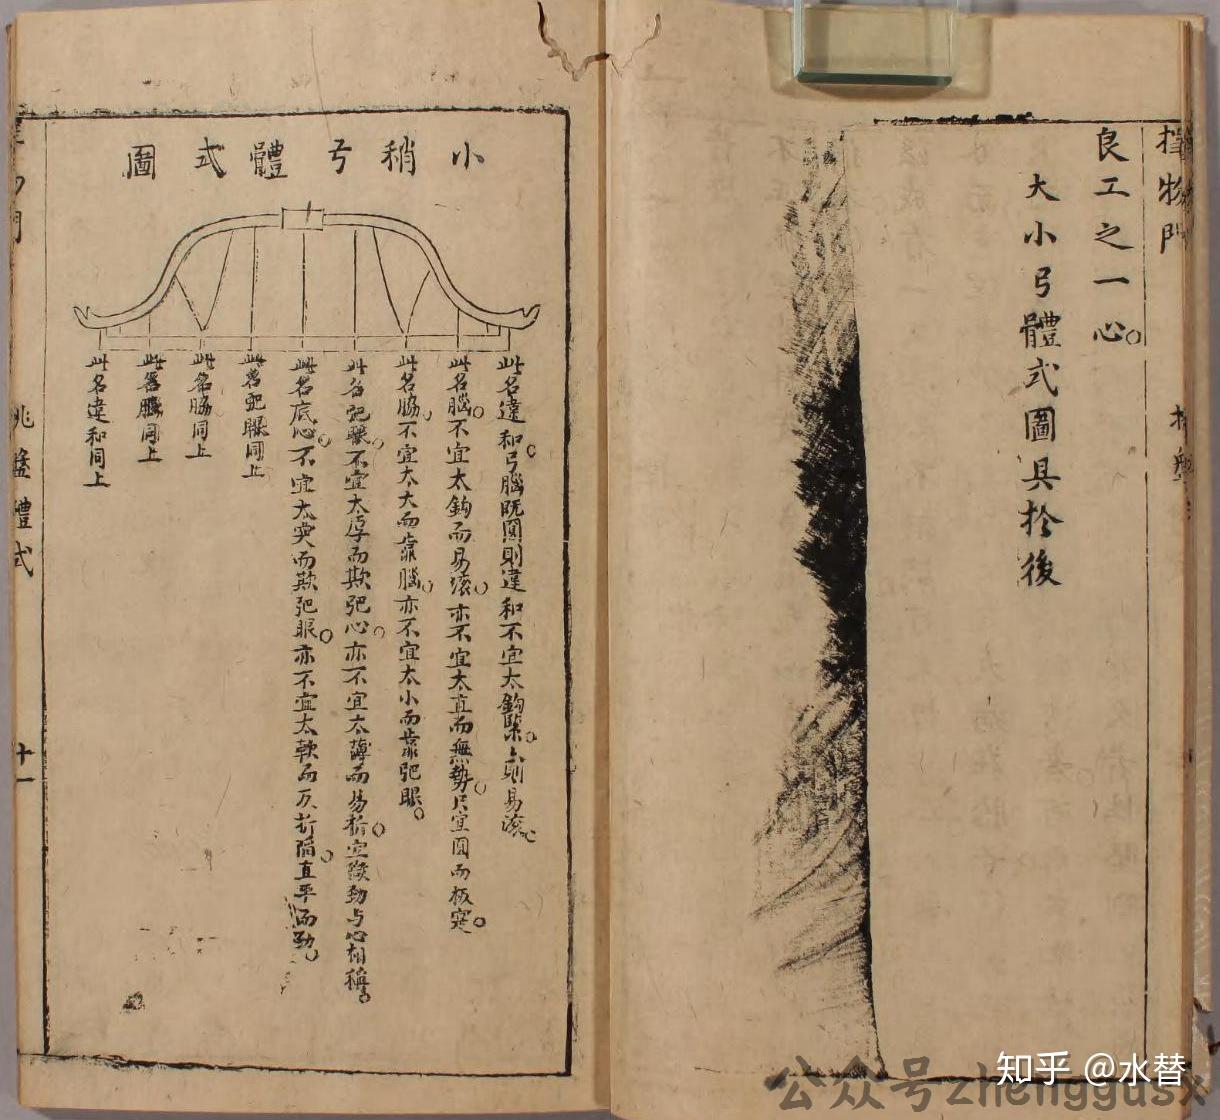 擇物門
良工之一心
大小弓體式圖具扵後
小稍弓體式圖
此名違和弓腦既圓則違和不宜太鈎 則易滾
此名腦不宜太鈎而易滾亦不宜太直而無勢只宜圓而板宽
此名脇不宜太大而靠腦亦不宜太小而靠弝眼
此名弝眼不宜太厚而欺弝心亦不宜太薄而易折宜 勁与心相稱
此名底心不宜太突而欺弝眼亦不宜太軟而 折 直平而勁
此名弝眼同上
此名脇同上
此名腦同上
此名違和同上
體式
十一
知乎 @水替
公众号zhenggusx